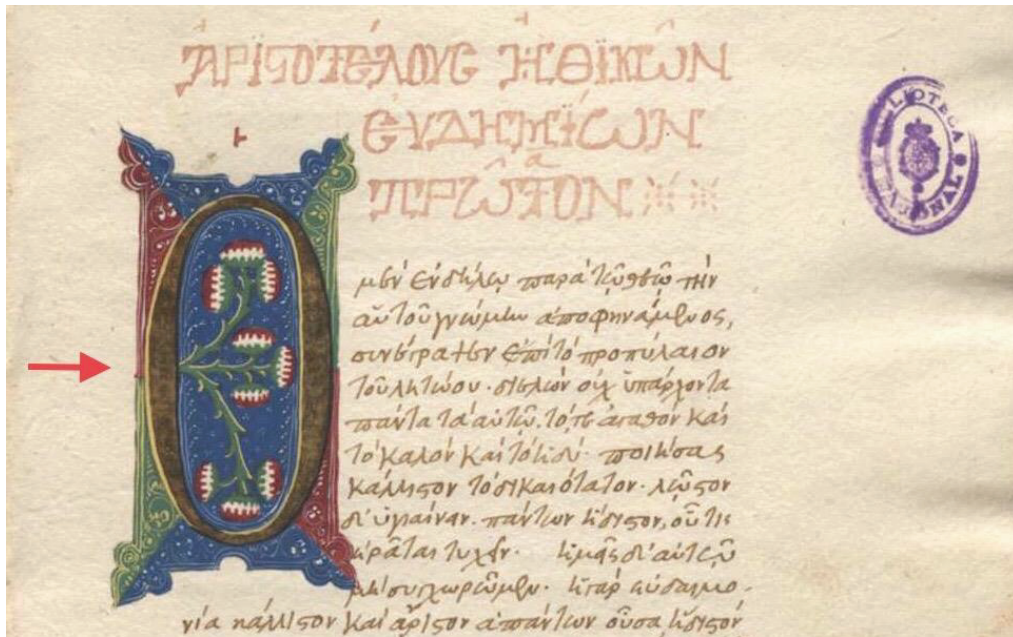 ἈΡΙΣΤΟΤΈΛΟΥΣ ἨΘΙΚΩ͂Ν
ΕΥΔΗΜΊΩΝ
ΠΡΩ͂ΤΟΝ
Ὁ μὲν ἐν δήλῳ παρὰ τῷ θεῷ τὴν
αὐτοῦ γνώμην ἀποφηνάμενος,
συνέγραψεν ἐπὶ τὸ προπύλαιον
τοῦ λητώου· διελὼν οὐχ ὑπάρχοντα
πάντα τὰ αὐτῶ. τό τε ἀγαθὸν καὶ
τὸ καλὸν καὶ τὸ ἡδύ· ποιήσας
κάλλιστον τὸ δικαιότατον· λῶστον
δ' ὑγιαίνειν. πάντων ἥδιστον, οὗ τις
ἐρᾶται τυχεῖν. ἡμᾶς δ' αὐτῷ
μὴ συγχωρῶμεν. ἡ γὰρ εὐδαιμο-
νία κάλλιστον καὶ ἄριστον ἁπάντων οὖσα ἥδιστον
BIBLIOTECA NACIONAL